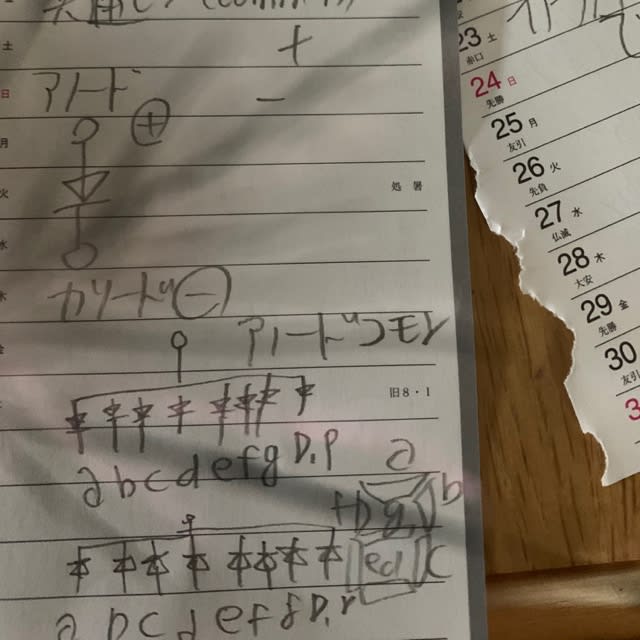 (common)
土
+
日
アノード
⊕
−
月
火
処暑
水
カソード⊖
木
金
アノードコモン
旧8・1
a b c d e f g D.P
a
b
g
ed
c
a b c d e f g D.P
23 土
赤口
24 日
先勝
25 月
友引
26 火
先負
27 水
仏滅
28 木
大安
29 金
先勝
30
友引
3